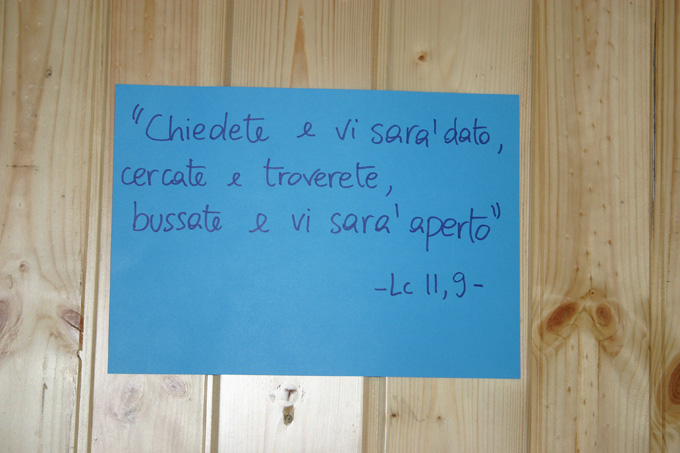 "Chiedete e vi sara' dato,
cercate e troverete,
bussate e vi sara' aperto"
-Lc 11,9-